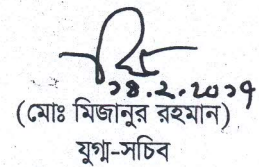 ১৪.২.২০১৭
(মোঃ মিজানুর রহমান)
যুগ্ম-সচিব